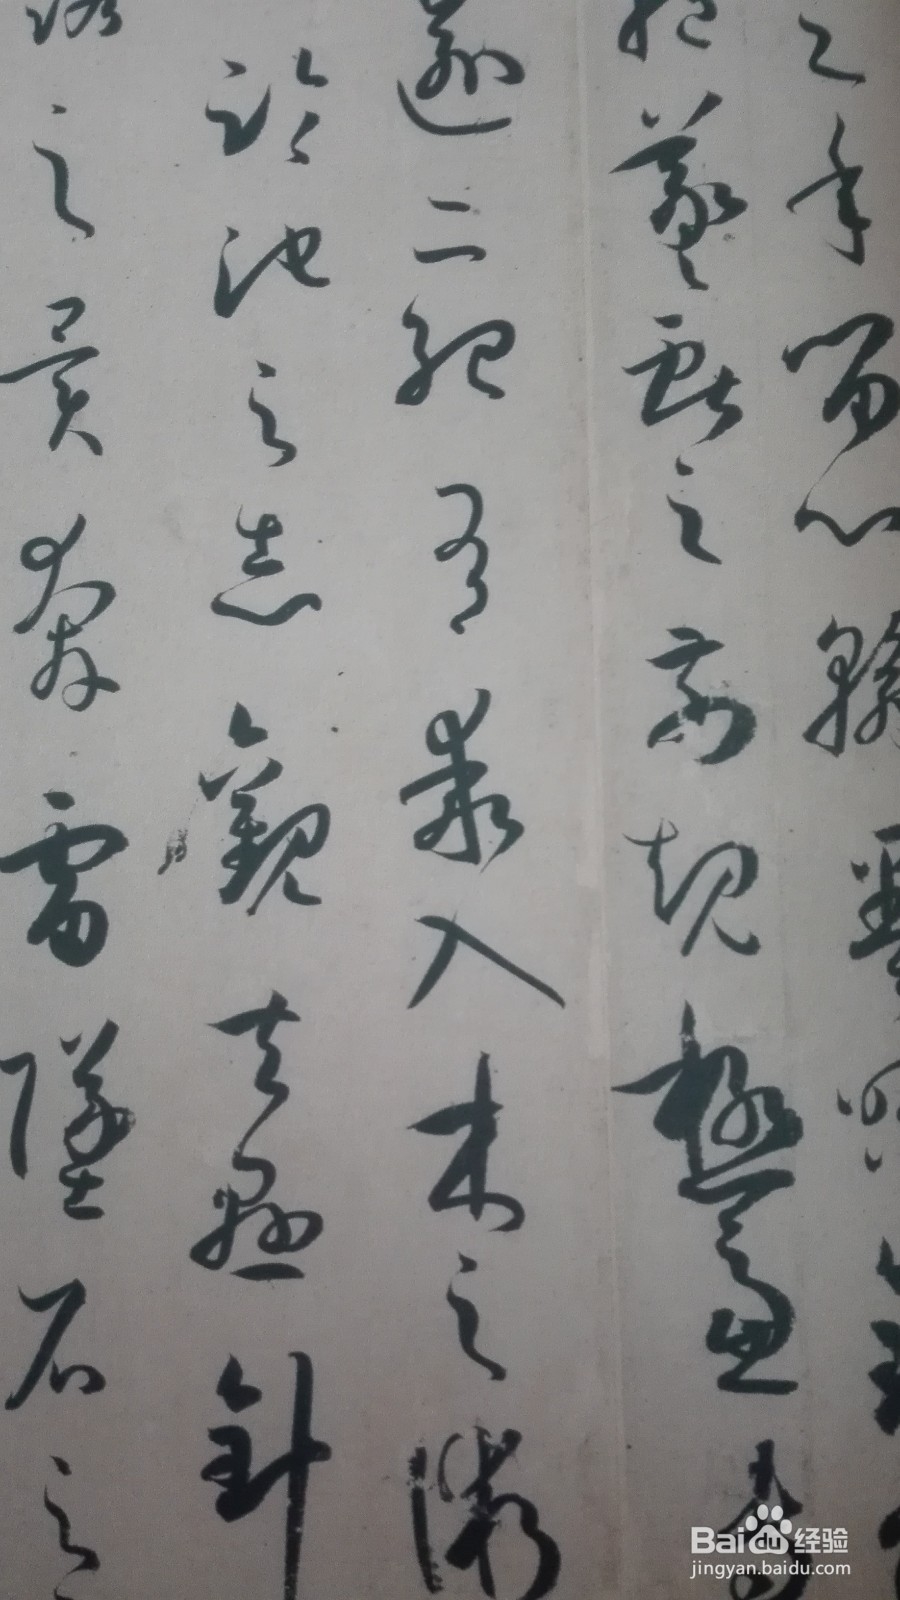 之年留心翰墨味鍾
張之餘烈挹羲獻之前規極慮專
逾二紀有乖入木之術
臨池之志觀夫懸針
露之異奔雷墜石之
Baidu经验
jingyan.baidu.com